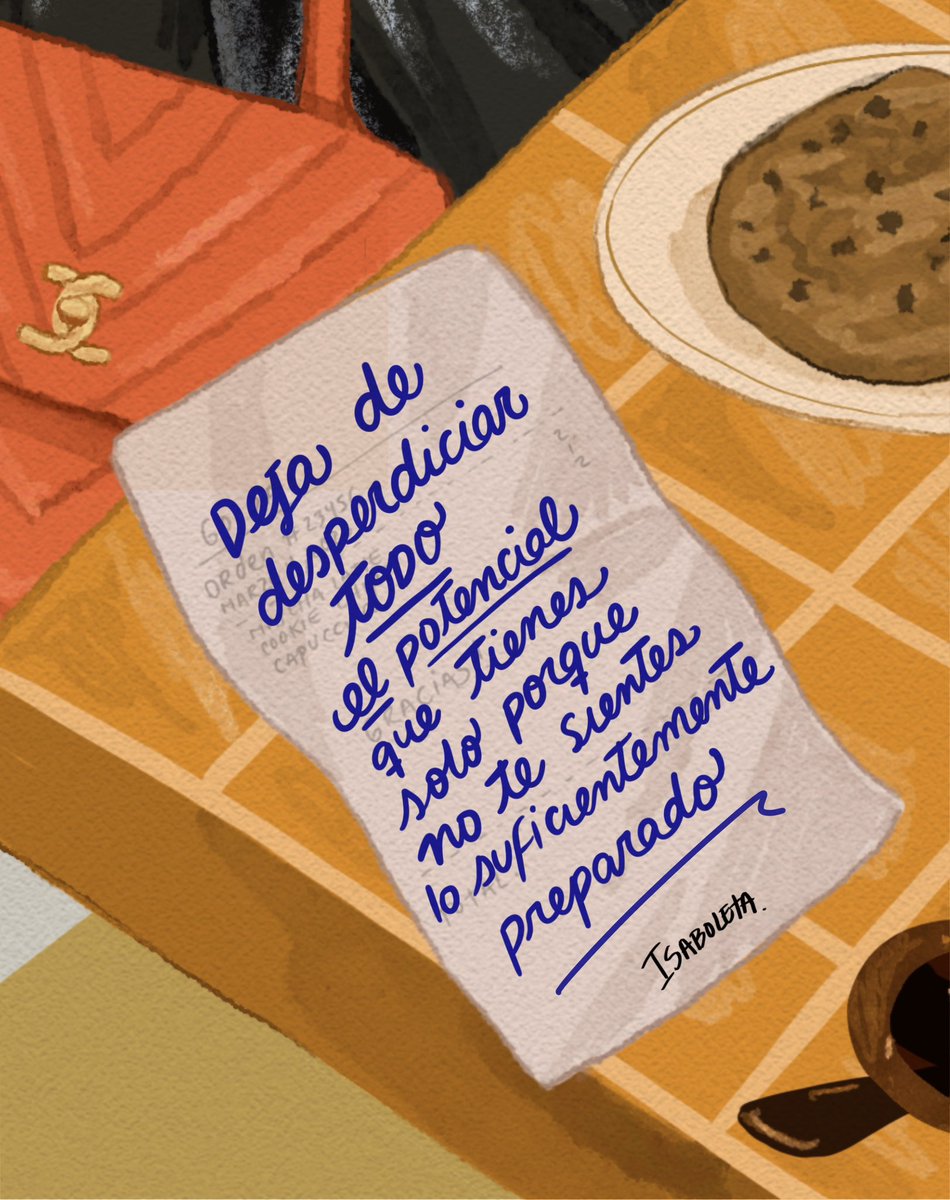 Deja de
desperdiciar
TODO
el potencial
que tienes
solo porque
no te sientes
lo suficientemente
preparado
ISABOLETA.
ORDEN #23456
COOKIE
CAPUCC
GRACIAS